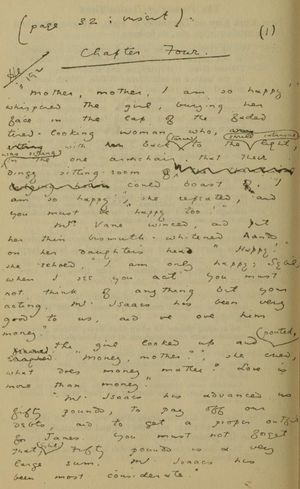 (page 32 : insert).
(1)
Chapter Four.
"Mother, mother, I am so happy,"
whispered the girl, burying her
face in the lap of the faded
tired-looking woman who,
with her back turned to the shrill intrusive light,
was sitting in the one armchair that their
dingy sitting-room
could boast of, "I
am so happy," she repeated, "and
you must be happy too."
Mrs Vane winced, and put
her thin bismuth-whitened hands
on her daughter's head. "Happy!"
she echoed, "I am only happy, Sybil,
when I see you act. You must
not think of anything but your
acting. Mr. Isaacs has been very
good to us, and we owe him
money."
The girl looked up and pouted,
"Money, mother," she cried,
"what does money matter? Love is
more than money."
"Mr. Isaacs has advanced us
fifty pounds, to pay off our
debts, and to get a proper outfit
for James. You must not forget
that Sybil. Fifty pounds is a very
large sum. Mr Isaacs has
been most considerate."